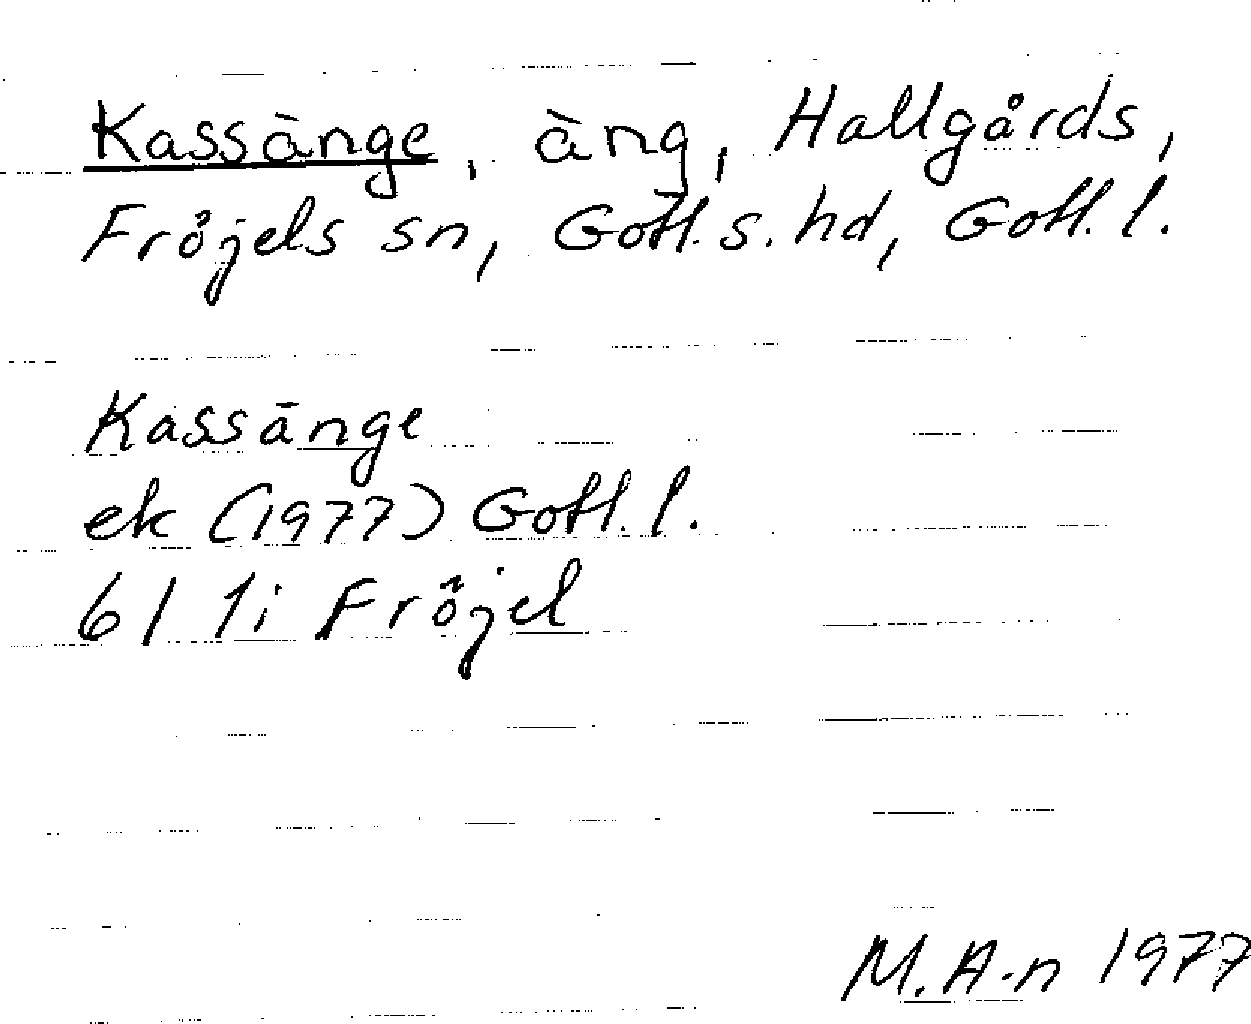 Kassänge, äng, Hallgårds,
Fröjels sn, Gotl. s. hd, Gotl. l.
Kassänge
ek (1977) Gotl. l.
61 1i Fröjel
M. A-n 1977